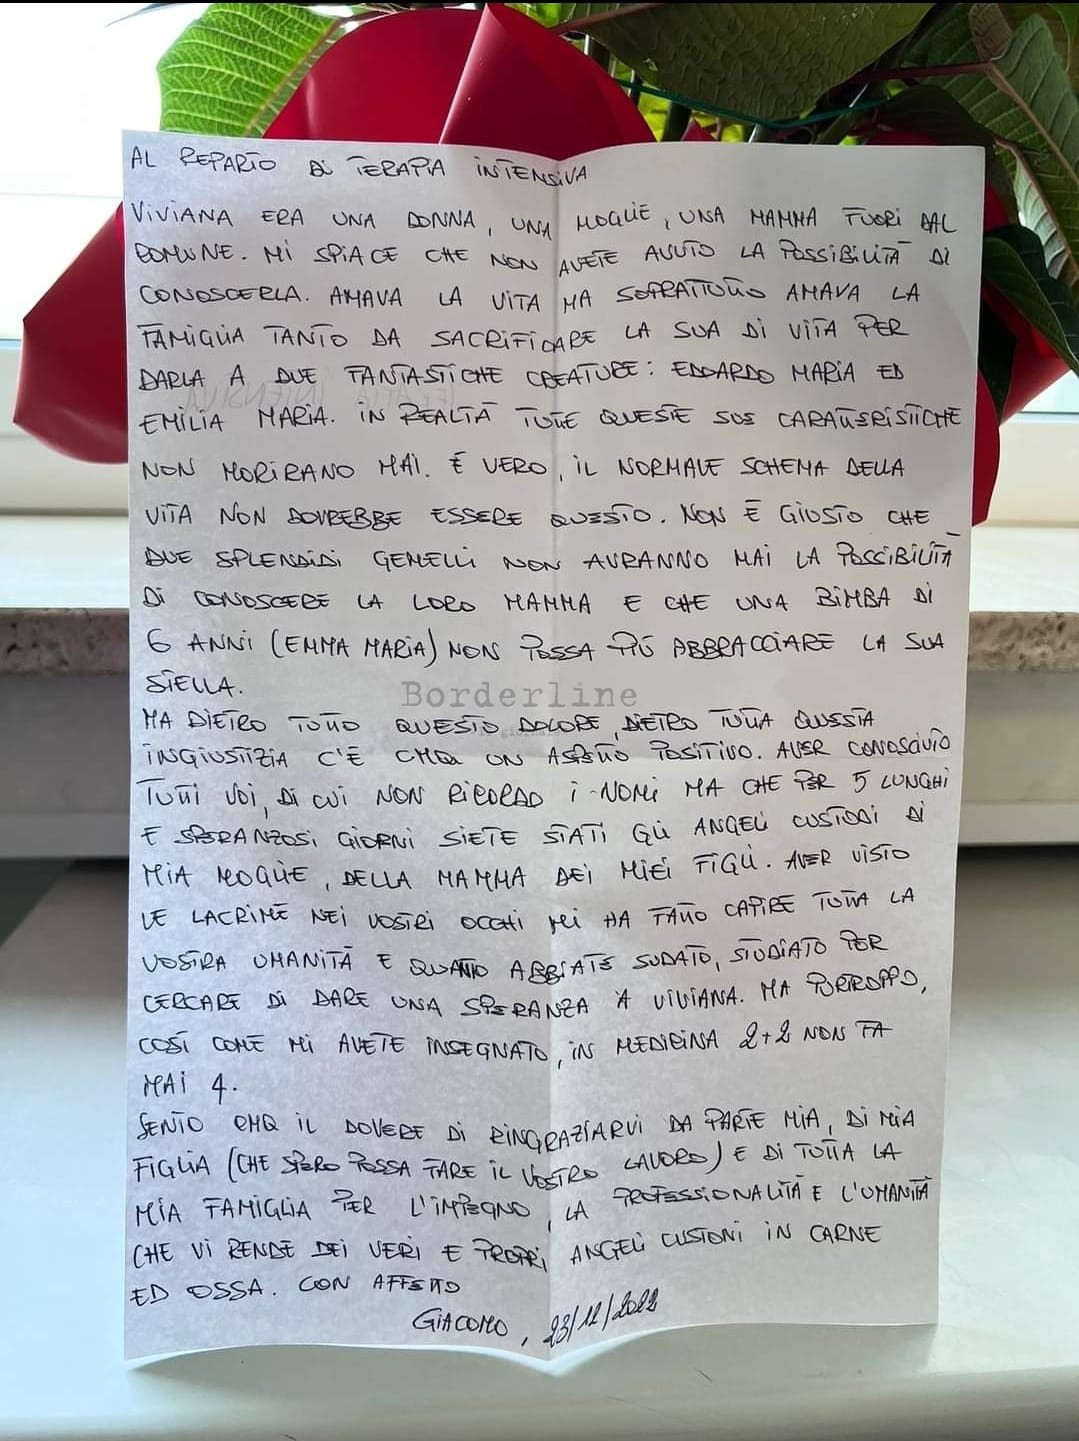 AL REPARTO DI TERAPIA INTENSIVA
VIVIANA ERA UNA DONNA, UNA MOGLIE, UNA MAMMA FUORI DAL
COMUNE. MI SPIACE CHE NON AVETE AVUTO LA POSSIBILITÀ DI
CONOSCERLA. AMAVA LA VITA MA SOPRATTUTTO AMAVA LA
FAMIGLIA TANTO DA SACRIFICARE LA SUA DI VITA PER
DARLA A DUE FANTASTICHE CREATURE: EDOARDO MARIA ED
EMILIA MARIA. IN REALTÀ TUTTE QUESTE SUE CARATTERISTICHE
NON MORIRANO MAI. È VERO, IL NORMALE SCHEMA DELLA
VITA NON DOVREBBE ESSERE QUESTO. NON È GIUSTO CHE
DUE SPLENDIDI GEMELLI NON AVRANNO MAI LA POSSIBILITÀ
DI CONOSCERE LA LORO MAMMA E CHE UNA BIMBA DI
6 ANNI (EMMA MARIA) NON POSSA PIÙ ABBRACCIARE LA SUA
STELLA.
Borderline
MA DIETRO TUTTO QUESTO DOLORE, DIETRO TUTTA QUESTA
INGIUSTIZIA C'È CMQ UN ASPETTO POSITIVO. AVER CONOSCIUTO
TUTTI VOI, DI CUI NON RICORDO I NOMI MA CHE PER 5 LUNGHI
E SPERANZOSI GIORNI SIETE STATI GLI ANGELI CUSTODI DI
MIA MOGLIE, DELLA MAMMA DEI MIEI FIGLI. AVER VISTO
LE LACRIME NEI VOSTRI OCCHI MI HA FATTO CAPIRE TUTTA LA
VOSTRA UMANITÀ E QUANTO ABBIATE SUDATO, STUDIATO PER
CERCARE DI DARE UNA SPERANZA A VIVIANA. MA PURTROPPO,
COSÌ COME MI AVETE INSEGNATO, IN MEDICINA 2+2 NON FA
MAI 4.
SENTO CMQ IL DOVERE DI RINGRAZIARVI DA PARTE MIA, DI MIA
FIGLIA (CHE SPERO POSSA FARE IL VOSTRO LAVORO) E DI TUTTA LA
MIA FAMIGLIA PER L'IMPEGNO, LA PROFESSIONALITÀ E L'UMANITÀ
CHE VI RENDE DEI VERI E PROPRI ANGELI CUSTONI IN CARNE
ED OSSA. CON AFFETTO
GIACOMO, 23/12/2022